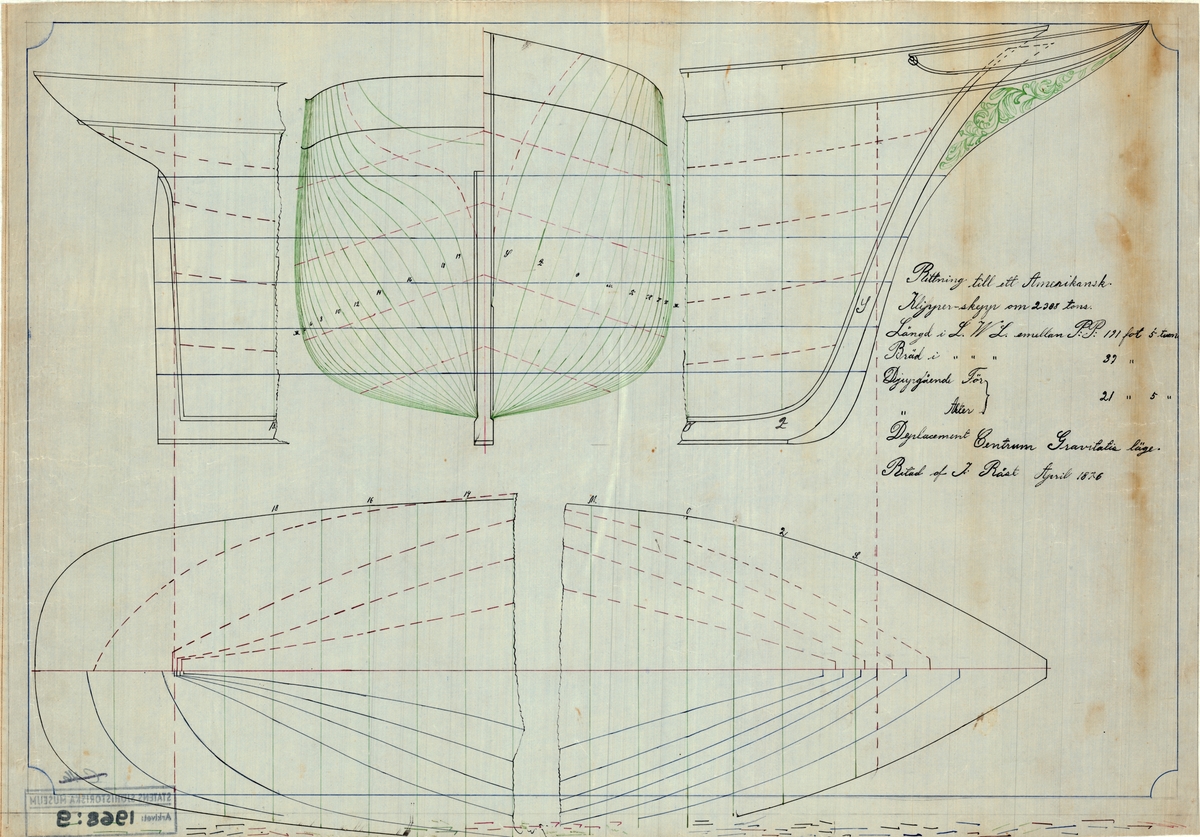 Rittning till ett Amerikansk
Klipper-skepp om 2308 tons.
Längd i L. W L. emellan P:P: 191 fot 5 tum
Bräd i " " " 37 "
Djupgående För
" Akter } 21 " 5 "
Deplacement Centrum Gravitatis läge.
Ritad af J. Råst April 1876
y
2
18 16 14 M. 0 2
STATENS SJÖHISTORISKA MUSEUM
Arkivet: 1968:9